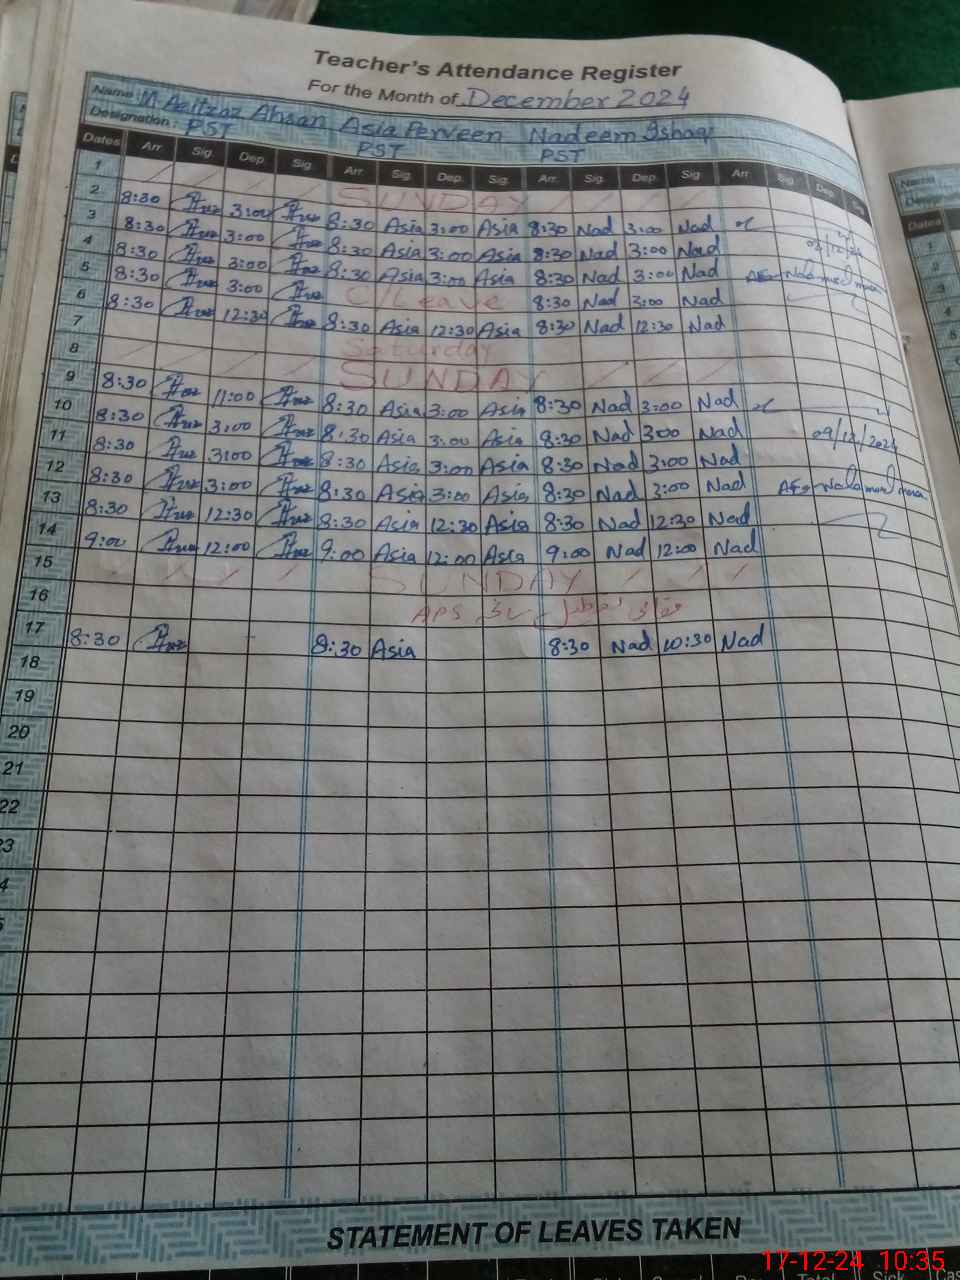 Teacher's Attendance Register
For the Month of December 2024
Name: M. Aaitzaz Ahsan Asia Perveen Nadeem Ishaq
Designation: PST PST PST
Dates Arr. Sig. Dep. Sig. Arr. Sig. Dep. Sig. Arr. Sig. Dep. Sig. Arr. Sig. Dep. Sig.
1 SUNDAY
2 8:30 3:00 8:30 Asia 3:00 Asia 8:30 Nad 3:00 Nad
3 8:30 3:00 8:30 Asia 3:00 Asia 8:30 Nad 3:00 Nad
4 8:30 3:00 8:30 Asia 3:00 Asia 8:30 Nad 3:00 Nad
5 8:30 3:00 C/Leave 8:30 Nad 3:00 Nad
6 8:30 12:30 8:30 Asia 12:30 Asia 8:30 Nad 12:30 Nad
7 Saturday
8 SUNDAY
9 8:30 11:00 8:30 Asia 3:00 Asia 8:30 Nad 3:00 Nad
10 8:30 3:00 8:30 Asia 3:00 Asia 8:30 Nad 3:00 Nad 09/12/2024
11 8:30 3:00 8:30 Asia 3:00 Asia 8:30 Nad 3:00 Nad
12 8:30 3:00 8:30 Asia 3:00 Asia 8:30 Nad 3:00 Nad
13 8:30 12:30 8:30 Asia 12:30 Asia 8:30 Nad 12:30 Nad
14 9:00 12:00 9:00 Asia 12:00 Asia 9:00 Nad 12:00 Nad
15 SUNDAY
16 APS مقامی تعطیل
17 8:30 8:30 Asia 8:30 Nad 10:30 Nad
18
19
20
21
22
23
STATEMENT OF LEAVES TAKEN
17-12-24 10:35